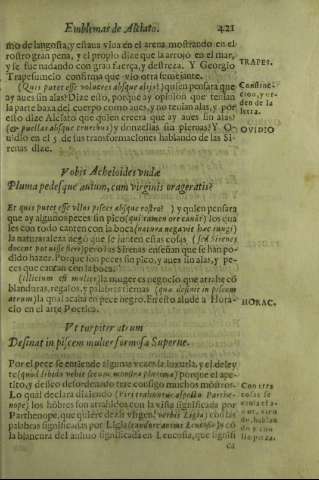 Emblemas de Alciato. 421
mo de langosta, y estaua viua en el arena mostrando en el
rostro gran pena, y el propio dize que la arrojo en el mar,
y se fue nadando con gran fuerça, y destreza. Y Georgio
Trapesuncio confirma que vio otra semejante.
TRAPES.
(Quis putet esse volucres absque alis?) quien pensara que
ay aues sin alas? Dize esto, porque ay opinion que tenian
la parte baxa del cuerpo como aues, y no tenian alas, y por
esto dize Alciato que quien creera que ay aues sin alas?
(& puellas absque cruribus) y donzellas sin piernas? Y O-
uidio en el 5 de sus transformaciones hablando de las Si-
renas dize.
Construc-
cion, y or-
den de la
letra.
OVIDIO
Vobis Acheloides vndæ
Pluma pedesque auium, cum virginis ora geratis?
Et quis putet esse vllus pisces absque rostro? ) y quien pensara
que ay algunos peces sin pico (qui tamen ore canāt) los cua
les con todo canten con la boca (natura negavit hæc iungi)
la naturaleza nego que se junten estas cosas (sed Sirenes
docent potuisse fieri) pero las Sirenas enseñan que se han po-
dido hazer. Porque los peces sin pico, y aues sin alas, y pe-
ces que cantan con la boca.
(illicium est mulier) la muger es negocio que atrahe cō
blanduras, regalos, y palabras tiernas (quæ desinit in piscem
atrum) la qual acaba en pece negro. En esto alude a Hora-
cio en el arte Poetica.
HORAC.
Vt turpiter atrum
Desinat in piscem mulier formosa Superne.
Por el pece se entiende algunas vezes la luxuria, y el deley
te (quod libido vehit secum monstra plurima) porque el ape-
tito, y desseo desordenado trae consigo muchos mōstros.
Lo qual declara diziendo (Viri trahuntur aspectu Parthe-
nope) los hōbres son atrahidos con la vista significada por
Parthenope, que quiere dezir virgen (verbis Ligia) con las
palabras significadas por Ligia (candore animi Leucosia) y cō
la blancura del animo significada en Leucosia, que signifi
Con tres
cosas se
ca